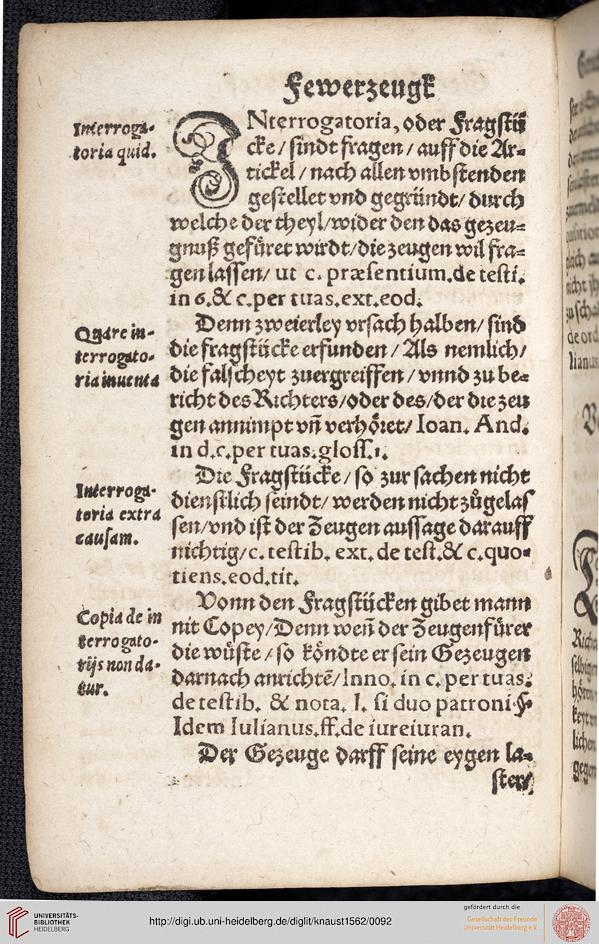 Fewerzeugk
Interroga-
toria quid.
INterrogatoria, oder Fragstü
cke / sindt fragen / auff die Ar-
tickel / nach allen vmbstenden
gestellet vnd gegründt / durch
welche der theyl / wider den das gezeu-
gnuß gefüret wirdt / die zeugen wil fra-
gen lassen / ut c. præsentium. de testi.
in 6. & c. per tuas. ext. eod.
Quare in-
terrogato-
ria inuenta
Denn zweierley vrsach halben / sind
die fragstücke erfunden / Als nemlich /
die falscheyt zuergreiffen / vnnd zu be-
richt des Richters / oder des / der die zeu
gen annimpt vñ verhöret / Ioan. And.
in d. c. per tuas. gloss. 1.
Interroga-
toria extra
causam.
Die Fragstücke / so zur sachen nicht
dienstlich seindt / werden nicht zůgelas
sen / vnd ist der Zeugen aussage darauff
nichtig / c. testib. ext. de test. & c. quo-
tiens. eod. tit.
Copia de in
terrogato-
rijs non da-
tur.
Vonn den Fragstücken gibet mann
nit Copey / Denn weñ der Zeugenfürer
die wüste / so köndte er sein Gezeugen
darnach anrichtẽ / Inno. in c. per tuas.
de testib. & nota. l. si duo patroni. §.
Idem Iulianus. ff. de iureiuran.
Der Gezeuge darff seine eygen la-
ster /
UNIVERSITÄTS-
BIBLIOTHEK
HEIDELBERG
http://digi.ub.uni-heidelberg.de/diglit/knaust1562/0092
gefördert durch die
Gesellschaft der Freunde
Universität Heidelberg e.V.